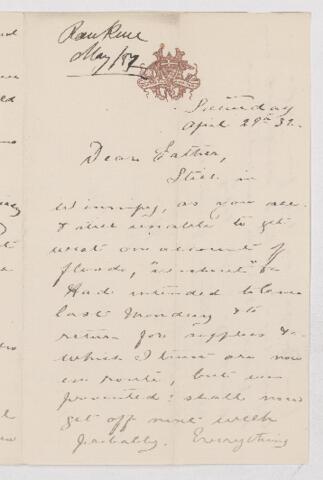 Rankine
May/82
Saturday
April 29th 82.
Dear Father,
Still in
Winnipeg, as you see.
& still unable to get
west on account of
floods, "washouts" &c
Had intended to leave
last Monday & to
return for supplies &c
which I think are now
en route, but was
prevented: shall now
get off next week
probably. Everything